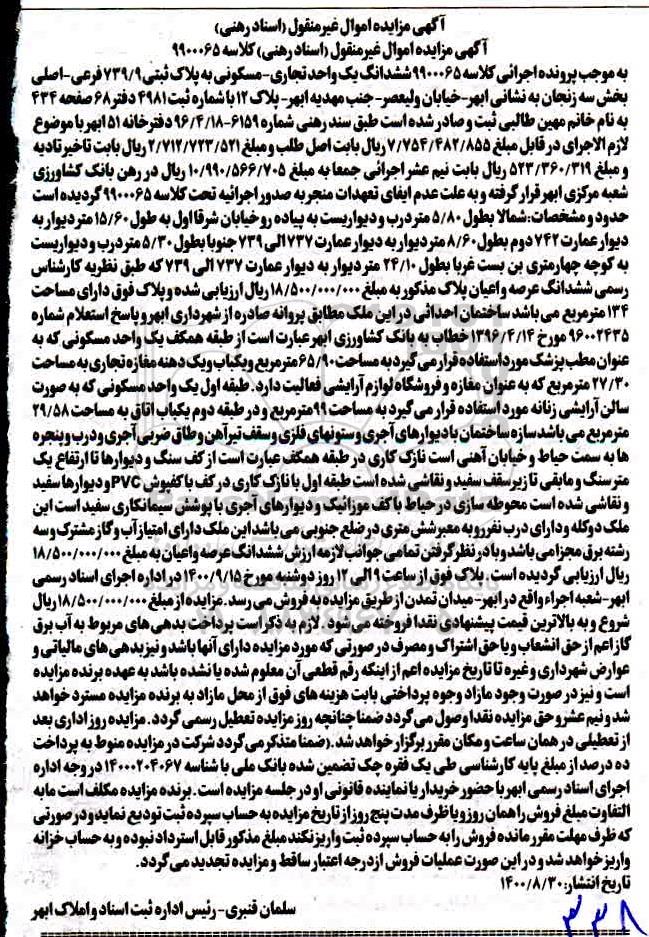 آگهی مزایده اموال غیرمنقول (اسناد رهنی)
آگهی مزایده اموال غیرمنقول (اسناد رهنی) کلاسه ۹۹۰۰۰۶۵
به موجب پرونده اجرائی کلاسه ۹۹۰۰۰۶۵ ششدانگ یک واحد تجاری-مسکونی به پلاک ثبتی ۷۳۹/۹ فرعی-اصلی
بخش سه زنجان به نشانی ابهر-خیابان ولیعصر-جنب مهدیه ابهر- پلاک ۱۲ با شماره ثبت ۴۹۸۱ دفتر ۶۸ صفحه ۴۳۴
به نام خانم مهین طالبی ثبت و صادر شده است طبق سند رهنی شماره ۶۱۵۹-۹۶/۴/۱۸ دفترخانه ۵۱ ابهر با موضوع
لازم الاجرای در قابل مبلغ ۷/۷۵۴/۴۸۲/۸۵۵ ریال بابت اصل طلب و مبلغ ۲/۷۱۲/۷۲۳/۵۲۱ ریال بابت تاخیر تادیه
و مبلغ ۵۲۳/۳۶۰/۳۱۹ ریال بابت نیم عشر اجرائی جمعا به مبلغ ۱۰/۹۹۰/۵۶۶/۷۰۵ ریال در رهن بانک کشاورزی
شعبه مرکزی ابهر قرار گرفته و به علت عدم ایفای تعهدات منجر به صدور اجرائیه تحت کلاسه ۹۹۰۰۰۶۵ گردیده است
حدود و مشخصات: شمالا بطول ۵/۸۰ متر درب و دیواریست به پیاده رو خیابان شرقا اول به طول ۱۵/۶۰ متر دیوار به
دیوار عمارت ۷۴۲ دوم بطول ۸/۶۰ متر دیوار به دیوار عمارت ۷۳۷ الی ۷۳۹ جنوبا بطول ۵/۳۰ متر درب و دیواریست
به کوچه چهارمتری بن بست غربا بطول ۲۴/۱۰ متر دیوار به دیوار عمارت ۷۳۷ الی ۷۳۹ که طبق نظریه کارشناس
رسمی ششدانگ عرصه و اعیان پلاک مذکور به مبلغ ۱۸/۵۰۰/۰۰۰/۰۰۰ ریال ارزیابی شده و پلاک فوق دارای مساحت
۱۳۴ مترمربع می باشد ساختمان احداثی در این ملک مطابق پروانه صادره از شهرداری ابهر و پاسخ استعلام شماره
۹۶۰۰۲۴۳۵ مورخ ۱۳۹۶/۴/۱۴ خطاب به بانک کشاورزی ابهر عبارت است از طبقه همکف یک واحد مسکونی که به
عنوان مطب پزشک مورد استفاده قرار می گیرد به مساحت ۶۵/۹۰ مترمربع و یکباب و یک دهنه مغازه تجاری به مساحت
۲۷/۳۰ مترمربع که به عنوان مغازه و فروشگاه لوازم آرایشی فعالیت دارد. طبقه اول یک واحد مسکونی که به صورت
سالن آرایشی زنانه مورد استفاده قرار می گیرد به مساحت ۹۹ مترمربع و در طبقه دوم یکباب اتاق به مساحت ۲۹/۵۸
مترمربع می باشد سازه ساختمان با دیوارهای آجری و ستونهای فلزی و سقف تیرآهن و طاق ضربی آجری و درب و پنجره
ها به سمت حیاط و خیابان آهنی است نازک کاری در طبقه همکف عبارت است از کف سنگ و دیوارها تا ارتفاع یک
متر سنگ و مابقی تا زیر سقف سفید و نقاشی شده است طبقه اول با نازک کاری در کف با کفپوش PVC و دیوارها سفید
و نقاشی شده است محوطه سازی در حیاط با کف موزائیک و دیوارهای آجری با پوشش سیمانکاری سفید است این
ملک دو کله و دارای درب نفررو به معبر شش متری در ضلع جنوبی می باشد این ملک دارای امتیاز آب و گاز مشترک و سه
رشته برق مجزا می باشد و با در نظر گرفتن تمامی جوانب لازمه ارزش ششدانگ عرصه و اعیان به مبلغ ۱۸/۵۰۰/۰۰۰/۰۰۰
ریال ارزیابی گردیده است. پلاک فوق از ساعت ۹ الی ۱۲ روز دوشنبه مورخ ۱۴۰۰/۹/۱۵ در اداره اجرای اسناد رسمی
ابهر-شعبه اجراء واقع در ابهر-میدان تمدن از طریق مزایده به فروش می رسد. مزایده از مبلغ ۱۸/۵۰۰/۰۰۰/۰۰۰ ریال
شروع و به بالاترین قیمت پیشنهادی نقدا فروخته می شود. لازم به ذکر است پرداخت بدهی های مربوط به آب برق
گاز اعم از حق انشعاب و یا حق اشتراک و مصرف در صورتی که مورد مزایده دارای آنها باشد و نیز بدهی های مالیاتی و
عوارض شهرداری و غیره تا تاریخ مزایده اعم از اینکه رقم قطعی آن معلوم شده یا نشده باشد به عهده برنده مزایده
است و نیز در صورت وجود مازاد وجوه پرداختی بابت هزینه های فوق از محل مازاد به برنده مزایده مسترد خواهد
شد و نیم عشر و حق مزایده نقدا وصول می گردد ضمنا چنانچه روز مزایده تعطیل رسمی گردد. مزایده روز اداری بعد
از تعطیلی در همان ساعت و مکان مقرر برگزار خواهد شد.(ضمنا متذکر می گردد شرکت در مزایده منوط به پرداخت
ده درصد از مبلغ پایه کارشناسی طی یک فقره چک تضمین شده بانک ملی با شناسه ۱۴۰۰۰۲۰۴۰۶۷ در وجه اداره
اجرای اسناد رسمی ابهر با حضور خریدار یا نماینده قانونی او در جلسه مزایده است. برنده مزایده مکلف است مابه
التفاوت مبلغ فروش را همان روز و یا ظرف مدت پنج روز از تاریخ مزایده به حساب سپرده ثبت تودیع نماید و در صورتی
که ظرف مهلت مقرر مانده فروش را به حساب سپرده ثبت واریز نکند مبلغ مذکور قابل استرداد نبوده و به حساب خزانه
واریز خواهد شد و در این صورت عملیات فروش از درجه اعتبار ساقط و مزایده تجدید می گردد.
تاریخ انتشار: ۱۴۰۰/۸/۳۰
سلمان قنبری-رئیس اداره ثبت اسناد و املاک ابهر
۳۳۸